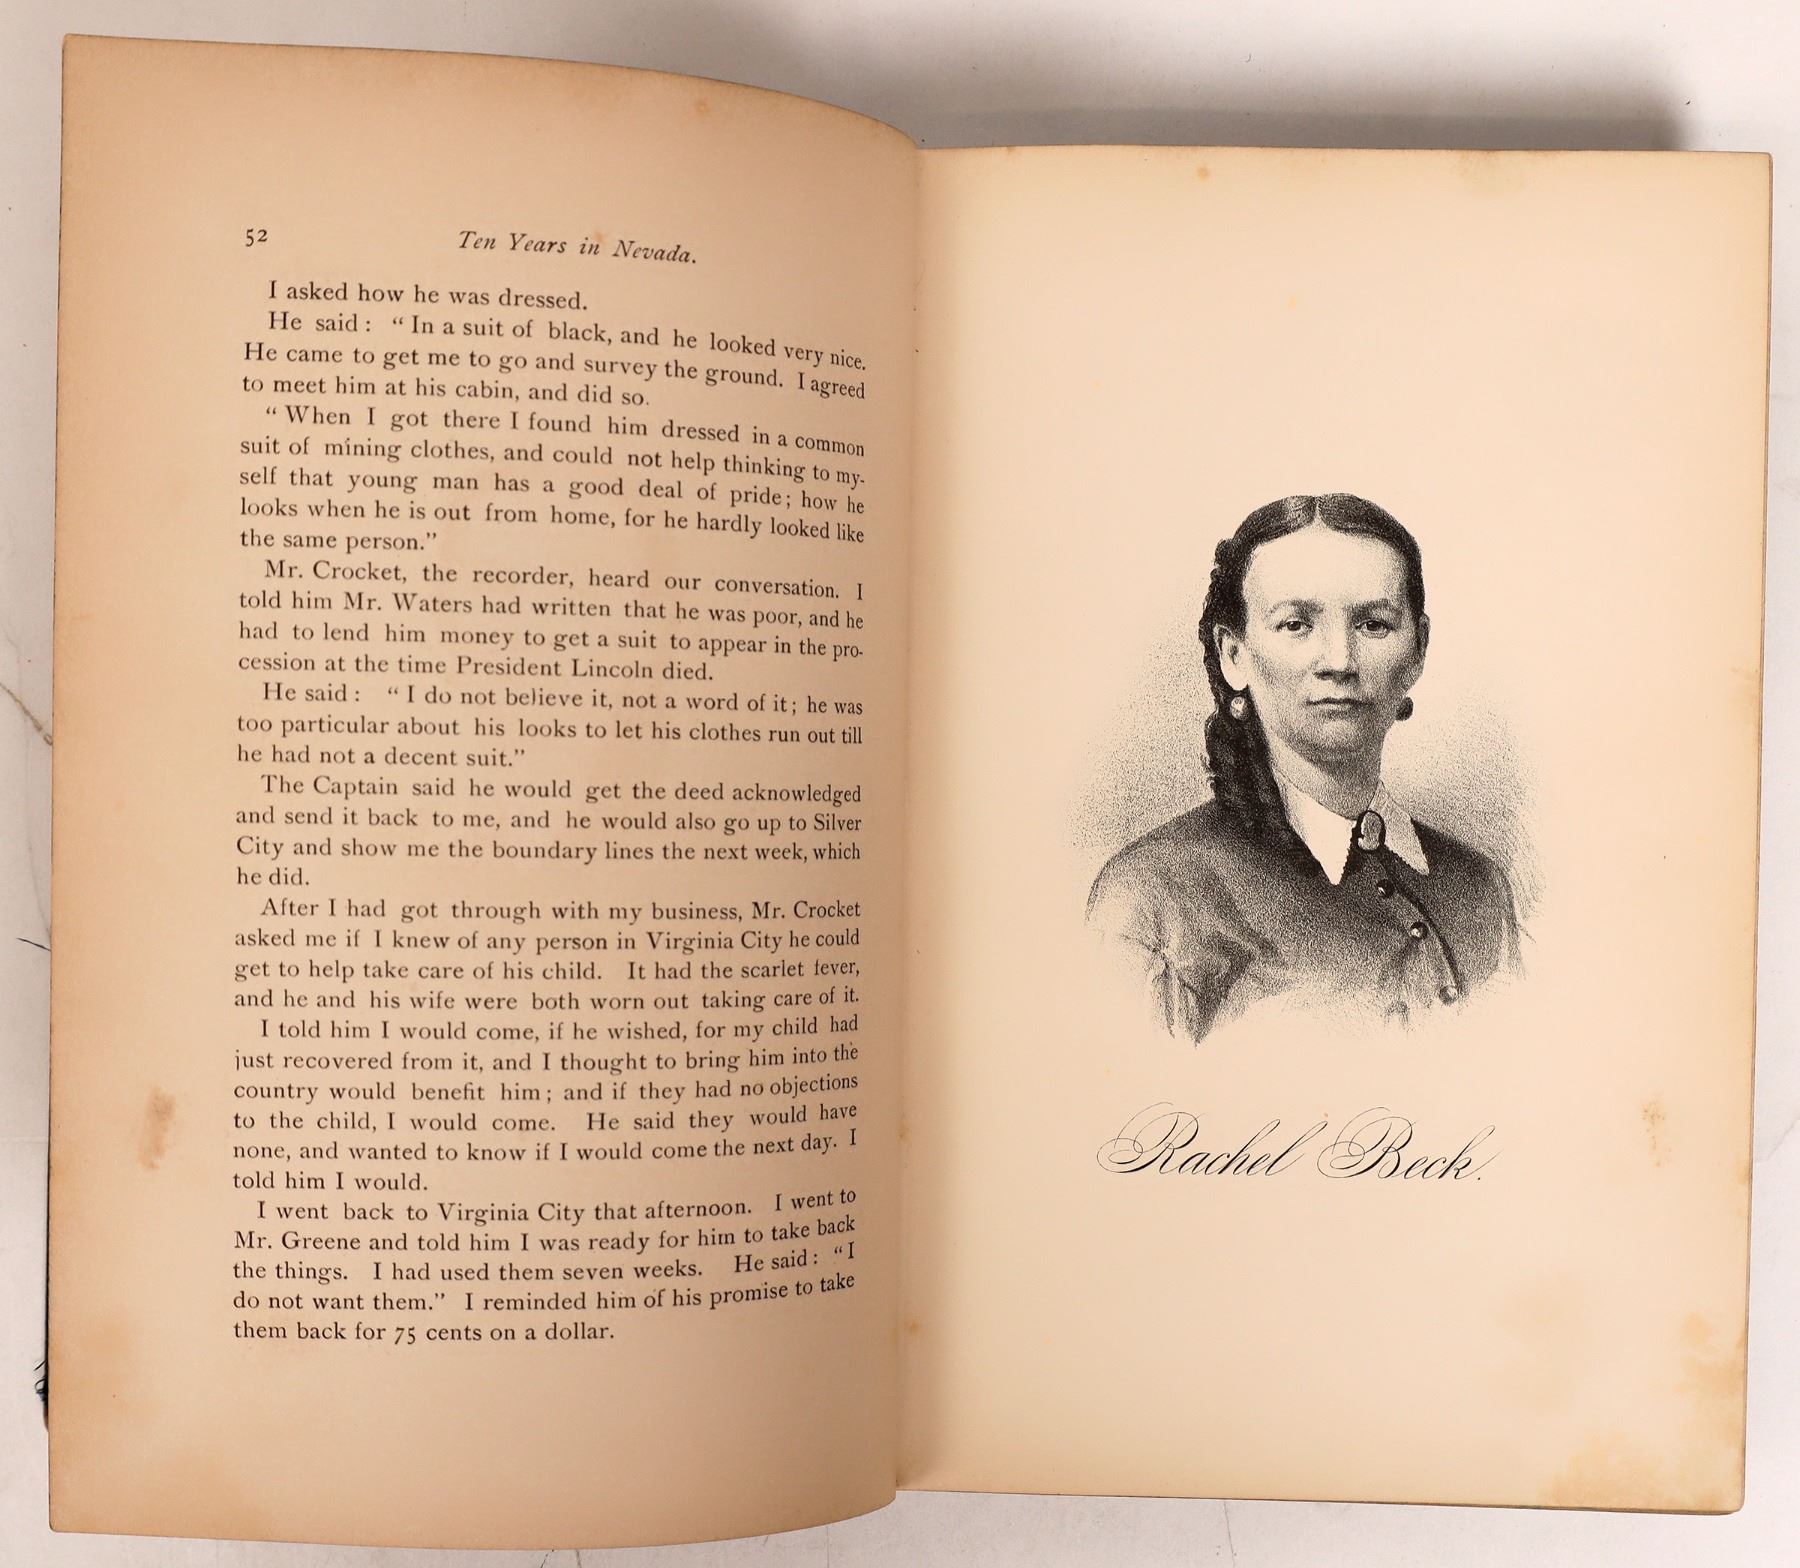 52 Ten Years in Nevada.
I asked how he was dressed.
He said : “ In a suit of black, and he looked very nice.
He came to get me to go and survey the ground. I agreed
to meet him at his cabin, and did so.
“ When I got there I found him dressed in a common
suit of mining clothes, and could not help thinking to my-
self that young man has a good deal of pride ; how he
looks when he is out from home, for he hardly looked like
the same person.”
Mr. Crocket, the recorder, heard our conversation. I
told him Mr. Waters had written that he was poor, and he
had to lend him money to get a suit to appear in the pro-
cession at the time President Lincoln died.
He said : “ I do not believe it, not a word of it ; he was
too particular about his looks to let his clothes run out till
he had not a decent suit.”
The Captain said he would get the deed acknowledged
and send it back to me, and he would also go up to Silver
City and show me the boundary lines the next week, which
he did.
After I had got through with my business, Mr. Crocket
asked me if I knew of any person in Virginia City he could
get to help take care of his child. It had the scarlet fever,
and he and his wife were both worn out taking care of it.
I told him I would come, if he wished, for my child had
just recovered from it, and I thought to bring him into the
country would benefit him ; and if they had no objections
to the child, I would come. He said they would have
none, and wanted to know if I would come the next day. I
told him I would.
I went back to Virginia City that afternoon. I went to
Mr. Greene and told him I was ready for him to take back
the things. I had used them seven weeks. He said : “ I
do not want them.” I reminded him of his promise to take
them back for 75 cents on a dollar.
Rachel Beck.